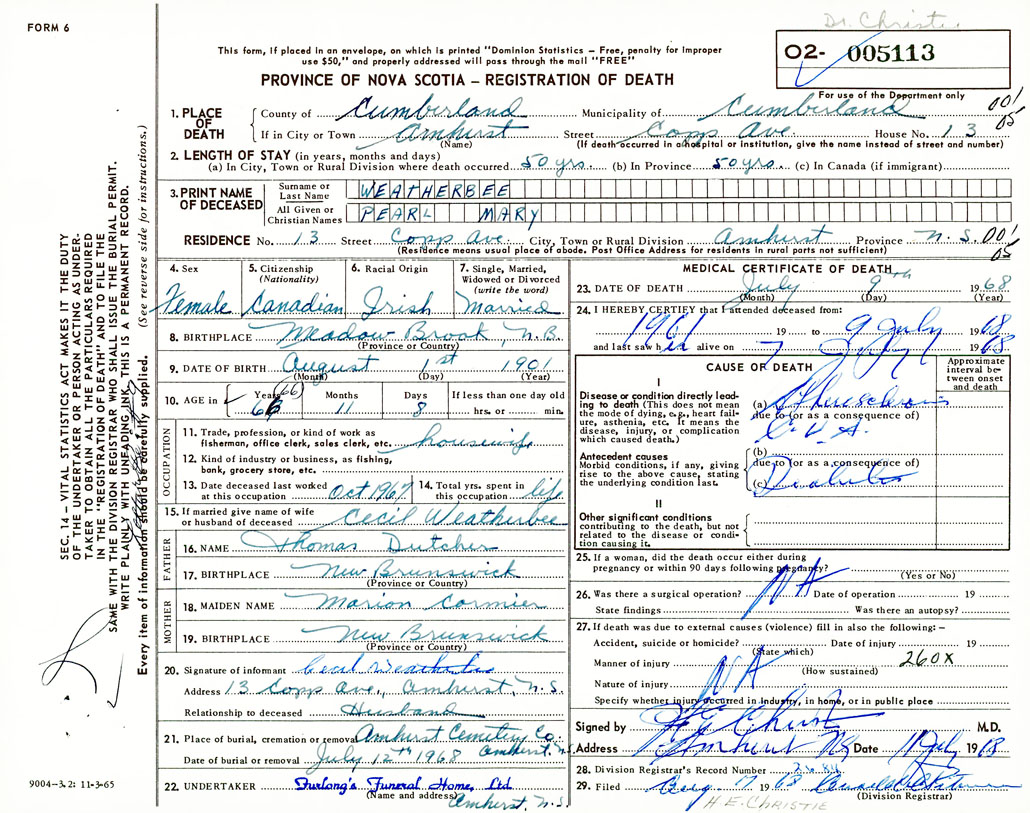 Dr. Christie
FORM 6
This form, if placed in an envelope, on which is printed "Dominion Statistics – Free, penalty for improper
use $50," and properly addressed will pass through the mail "FREE"
PROVINCE OF NOVA SCOTIA – REGISTRATION OF DEATH
02- 005113
For use of the Department only
001
05
1. PLACE OF DEATH
County of Cumberland Municipality of Cumberland
If in City or Town Amherst Street Copp Ave. House No. 13
(Name) (If death occurred in a hospital or institution, give the name instead of street and number)
2. LENGTH OF STAY (in years, months and days)
(a) In City, Town or Rural Division where death occurred 50 yrs. (b) In Province 50 yrs. (c) In Canada (if immigrant)
3. PRINT NAME OF DECEASED
Surname or Last Name WEATHERBEE
All Given or Christian Names PEARL MARY
RESIDENCE No. 13 Street Copp Ave. City, Town or Rural Division Amherst Province N.S. 001
(Residence means usual place of abode. Post Office Address for residents in rural parts not sufficient) 05
4. Sex Female
5. Citizenship (Nationality) Canadian
6. Racial Origin Irish
7. Single, Married, Widowed or Divorced (write the word) Married
8. BIRTHPLACE Meadow Brook, N.B.
(Province or Country)
9. DATE OF BIRTH August 1st 1901
(Month) (Day) (Year)
10. AGE in Years (66) 66 Months 11 Days 8 If less than one day old
hrs. or min.
OCCUPATION
11. Trade, profession, or kind of work as
fisherman, office clerk, sales clerk, etc. housewife
12. Kind of industry or business, as fishing,
bank, grocery store, etc.
13. Date deceased last worked
at this occupation Oct 1967
14. Total yrs. spent in
this occupation life
15. If married give name of wife
or husband of deceased Cecil Weatherbee
FATHER
16. NAME Thomas Dutcher
17. BIRTHPLACE New Brunswick
(Province or Country)
MOTHER
18. MAIDEN NAME Marion Cormier
19. BIRTHPLACE New Brunswick
(Province or Country)
20. Signature of informant Cecil Weatherbee
Address 13 Copp Ave., Amherst, N.S.
Relationship to deceased Husband
21. Place of burial, cremation or removal Amherst Cemetery Co.
Amherst, N.S.
Date of burial or removal July 12th 1968
22. UNDERTAKER Furlong's Funeral Home, Ltd.
(Name and address) Amherst, N.S.
MEDICAL CERTIFICATE OF DEATH
23. DATE OF DEATH July 9th 1968
(Month) (Day) (Year)
24. I HEREBY CERTIFY that I attended deceased from:
1961 19 to 9 July 1968
and last saw her alive on 7 July 1968
CAUSE OF DEATH
Approximate interval between onset and death
I
Disease or condition directly leading to death (This does not mean the mode of dying, e.g., heart failure, asthenia, etc. It means the disease, injury, or complication which caused death.)
(a)
due to (or as a consequence of)
C.V.A.
Antecedent causes
Morbid conditions, if any, giving rise to the above cause, stating the underlying condition last.
(b)
due to (or as a consequence of)
(c) Diabetes
II
Other significant conditions
contributing to the death, but not related to the disease or condition causing it.
25. If a woman, did the death occur either during
pregnancy or within 90 days following pregnancy?
(Yes or No)
26. Was there a surgical operation? NA Date of operation 19
State findings Was there an autopsy?
27. If death was due to external causes (violence) fill in also the following: –
Accident, suicide or homicide? Date of injury 19
(State which)
Manner of injury 260X
(How sustained)
Nature of injury NA
Specify whether injury occurred in Industry, in home, or in public place
Signed by M.D.
Address Amherst NS Date July 1968
28. Division Registrar's Record Number
29. Filed 19 68
(Division Registrar)
H.E. CHRISTIE
SEC. 14 – VITAL STATISTICS ACT MAKES IT THE DUTY
OF THE UNDERTAKER OR PERSON ACTING AS UNDER-
TAKER TO OBTAIN ALL THE PARTICULARS REQUIRED
IN THE "REGISTRATION OF DEATH" AND TO FILE THE
SAME WITH THE DIVISION REGISTRAR WHO SHALL ISSUE THE BURIAL PERMIT.
WRITE PLAINLY WITH UNFADING INK. THIS IS A PERMANENT RECORD.
Every item of information should be carefully supplied. (See reverse side for instructions.)
9004–3.2: 11-3-65